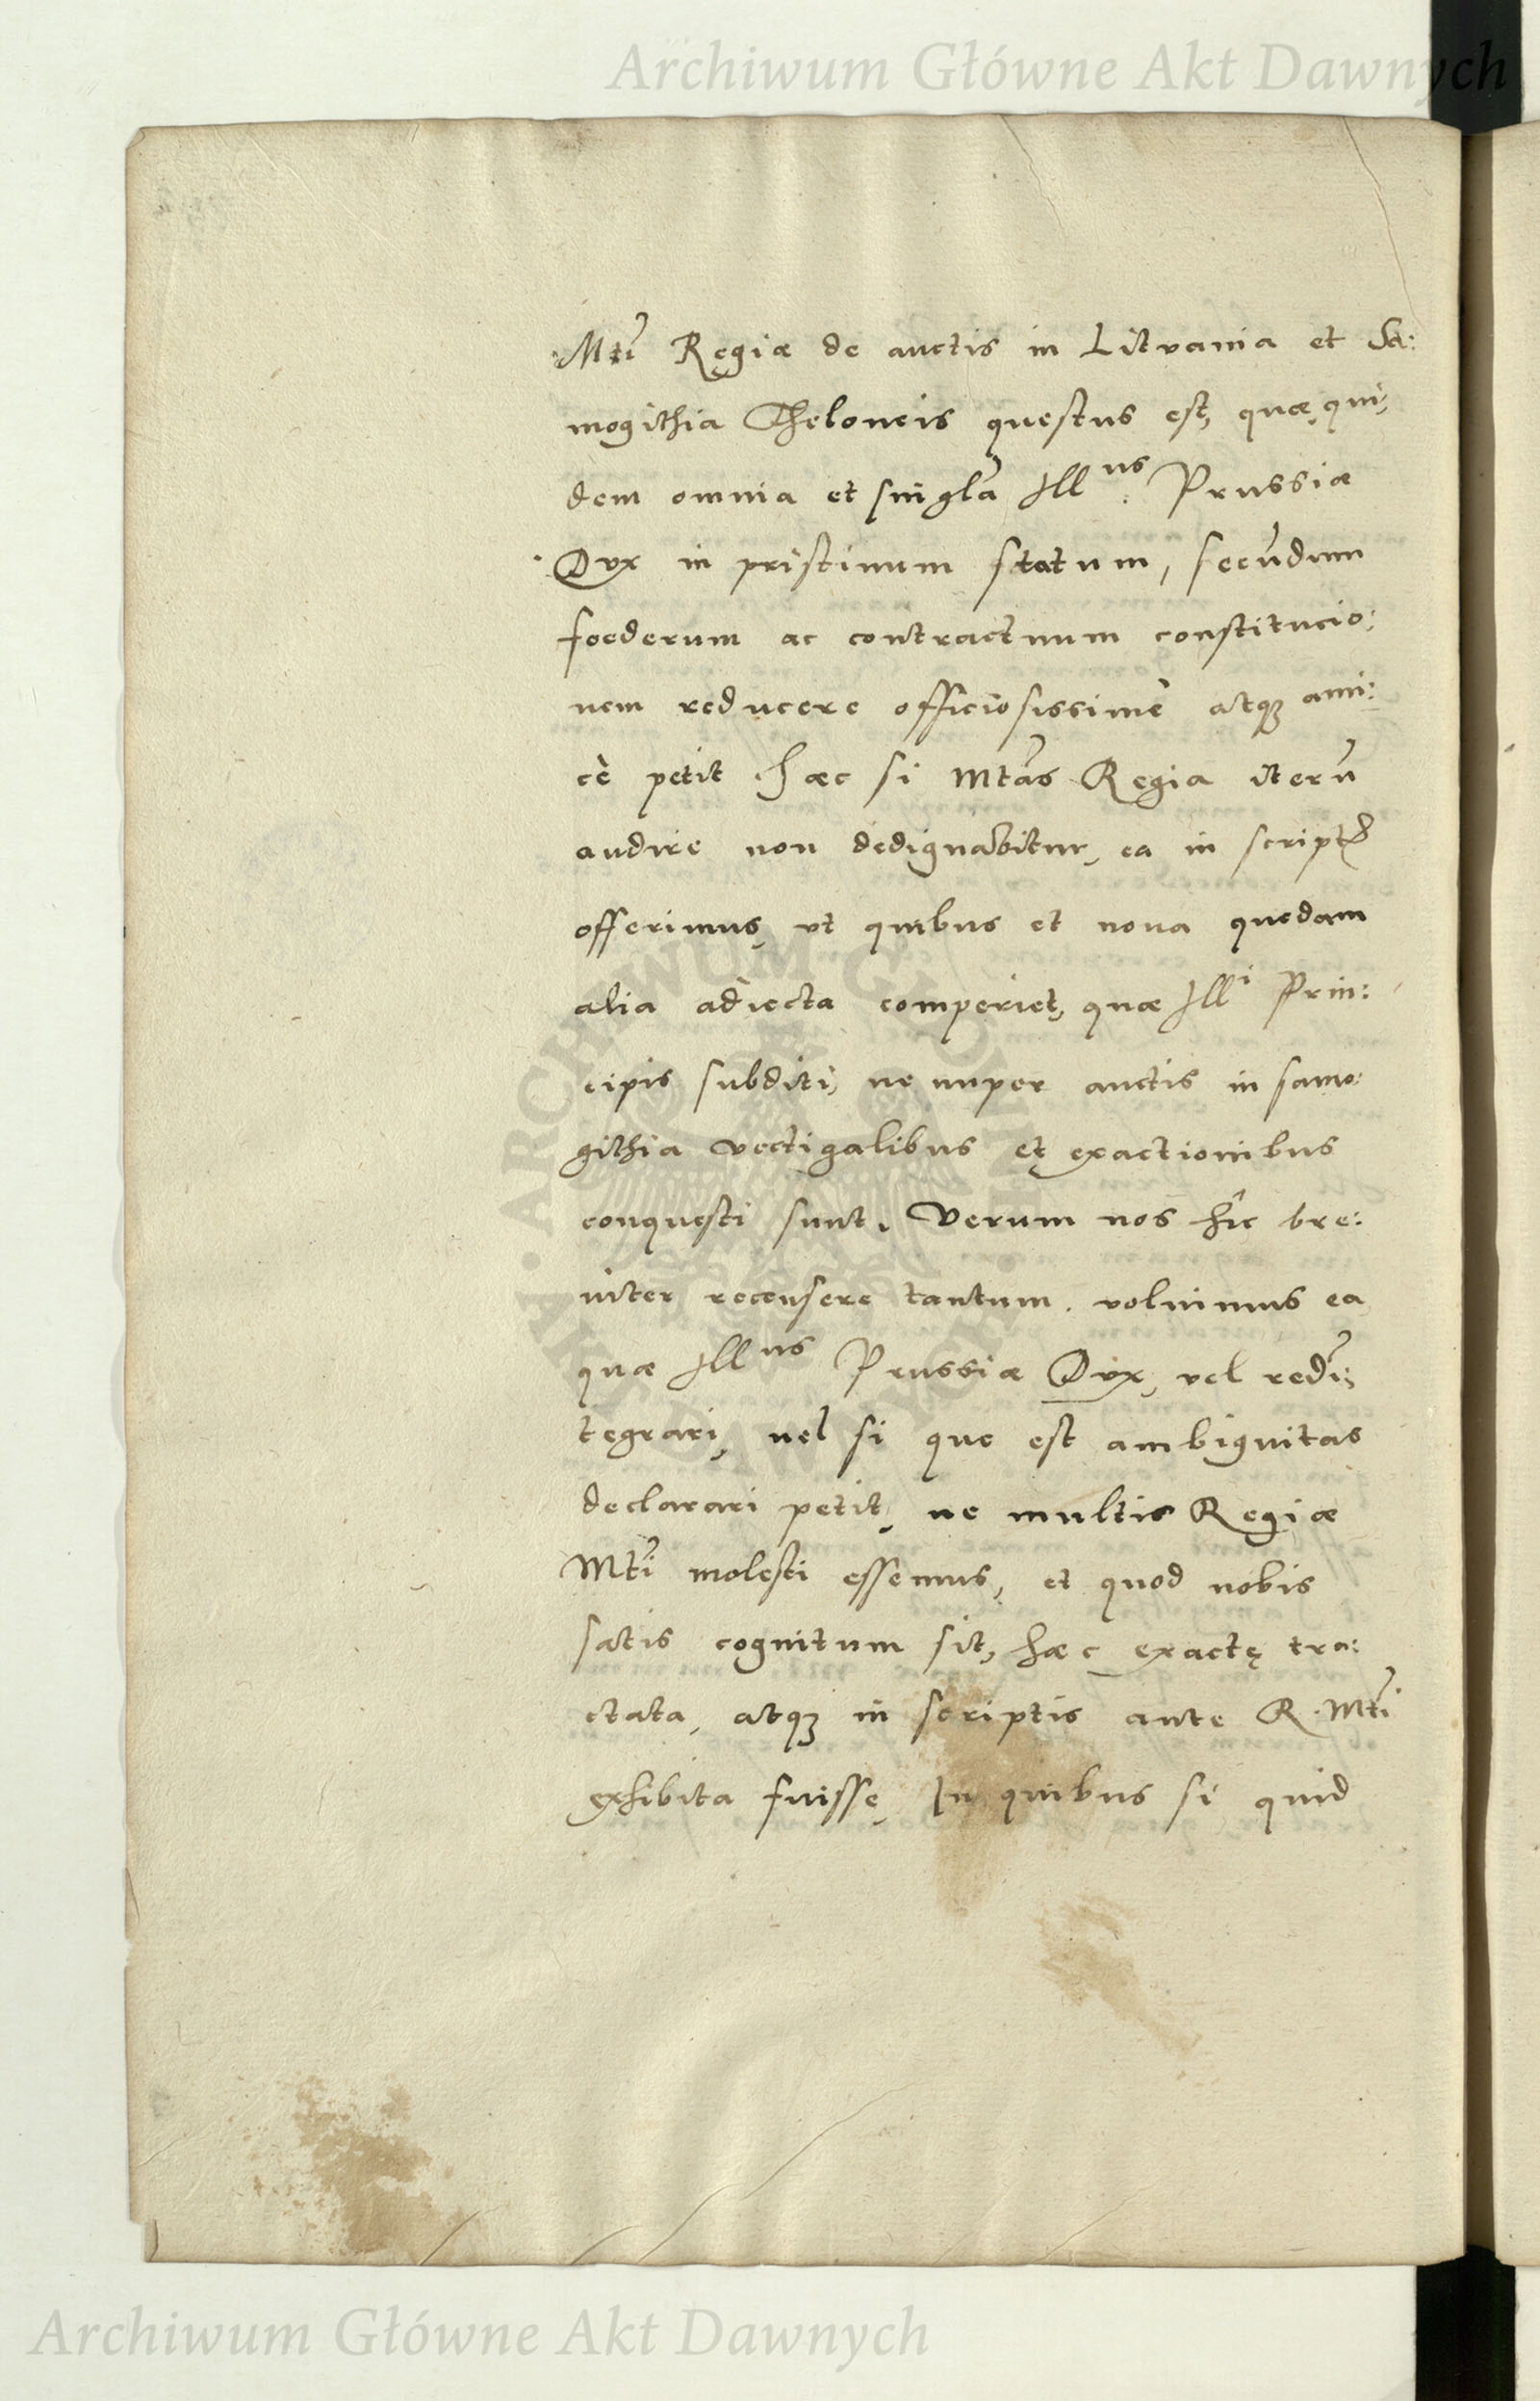 Archiwum Główne Akt Dawnych
Mtī Regiæ de auctis in Litvania et Sa:
mogithia Theloneis questus est, quæ qui,
dem omnia et singla Illus. Prussiæ
Dux in pristinum statum, secundum
foederum ac contractuum constitucio:
nem reducere officiosissimè atque ami:
cè petit. Hæc si Mtās Regia iterū
audire non dedignabitur, ea in scriptis
offerimus, vt quibus et noua quedam
alia adiecta comperiet, quæ Illi Prin:
cipis subditi, ne nuper auctis in samo:
githia vectigalibus et exactionibus
conquesti sunt. Verum nos hîc bre:
uiter recensere tantum voluimus ea
quæ Illus Prussiæ Dux, vel redīn
tegrari, uel si que est ambiguitas
declarari petit, ne multis Regiæ
Mtī molesti essemus, et quod nobis
satis cognitum sit, hæc exactę tra:
ctata, atque in scriptis ante R. Mtī
exhibita fuisse, In quibus si quid
ARCHIWUM GŁÓWNE AKT DAWNYCH
Archiwum Główne Akt Dawnych